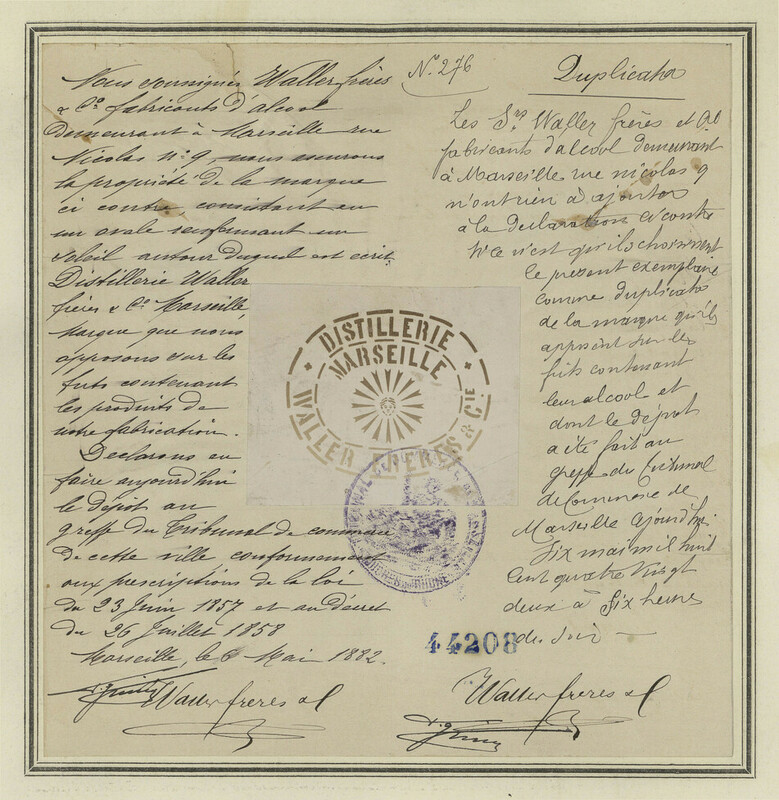 Nous soussignés Waller frères
& Cie fabricants d'alcool
demeurant à Marseille rue
Nicolas n: 9, nous assurons
la propriété de la marque
ci contre consistant en
un ovale renfermant un
soleil autour duquel est écrit.
Distillerie Waller
frères & Cie Marseille,
Marque que nous
apposons sur les
futs contenant
les produits de
notre fabrication.
Declarons en
faire aujourd'hui
le dépôt au
greffe du Tribunal de commerce
de cette ville conformement
aux prescriptions de la loi
du 23 Juin 1857 et au décret
du 26 Juillet 1858
Marseille, le 6 Mai 1882.
Waller freres &
No. 276
Duplicata
Les Srs Waller frères et Cie
fabricants d'alcool demeurant
à Marseille rue nicolas 9
n'ont rien à ajouter
à la déclaration ci contre
si ce n'est qu'ils choisissent
le présent exemplaire
comme duplicata
de la marque qu'ils
apposent sur les
futs contenant
leur alcool et
dont le depot
a été fait au
greffe du Tribunal
de Commerce de
Marseille aujourd'hui
Six mai mil huit
cent quatre vingt
deux à Six heures
du soir —
Waller freres &
DISTILLERIE
MARSEILLE
WALLER FRERES & CIE
44208